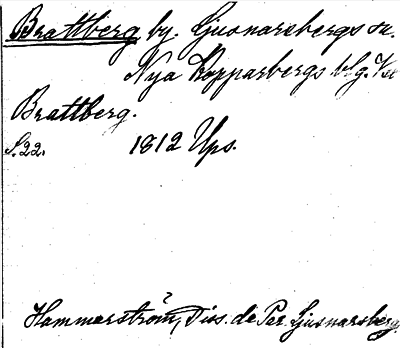 Brattberg by. Ljusnarsbergs sn.
Nya Kopparbergs blg. Vsl
Brattberg.
S. 22. 1812 Ups.
Hammarström, Diss. de Par. Ljusnarsberg.